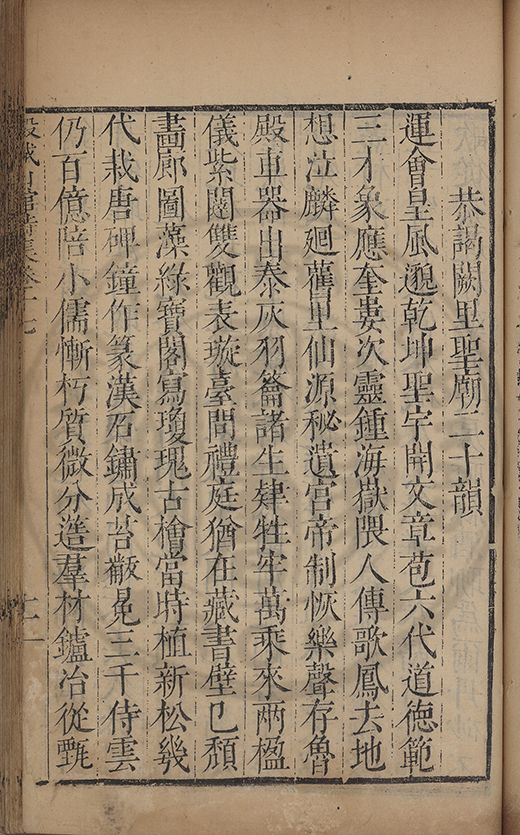 恭謁闕里聖廟二十韻
運會皇風邈乾坤聖宇開文章苞六代道德範
三才象應奎婁次靈鍾海嶽隈人傳歌鳳去地
想泣麟廻舊里仙源秘遺宮帝制恢樂聲存魯
殿車器出秦灰羽籥諸生肄牲牢萬乘來兩楹
儀紫闥雙觀表璇臺問禮庭猶在藏書壁已頹
畵廊圖藻綠寶閣寫瓊瑰古檜當時植新松幾
代栽唐碑鐘作篆漢石鏽成苔黻冕三千侍雲
仍百億陪小儒慚朽質微分造羣材鑪冶從甄